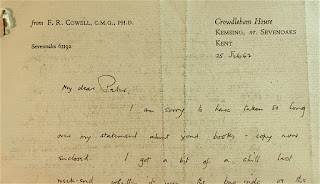 from F. R. COWELL, C.M.G., PH.D.
Crowdleham House
KEMSING, nr. SEVENOAKS
KENT
Sevenoaks 61192
25
My dear
I am sorry to have taken so long
over my statement about your books - copy now
enclosed. I got a bit of a chill last
week-end whether it was the